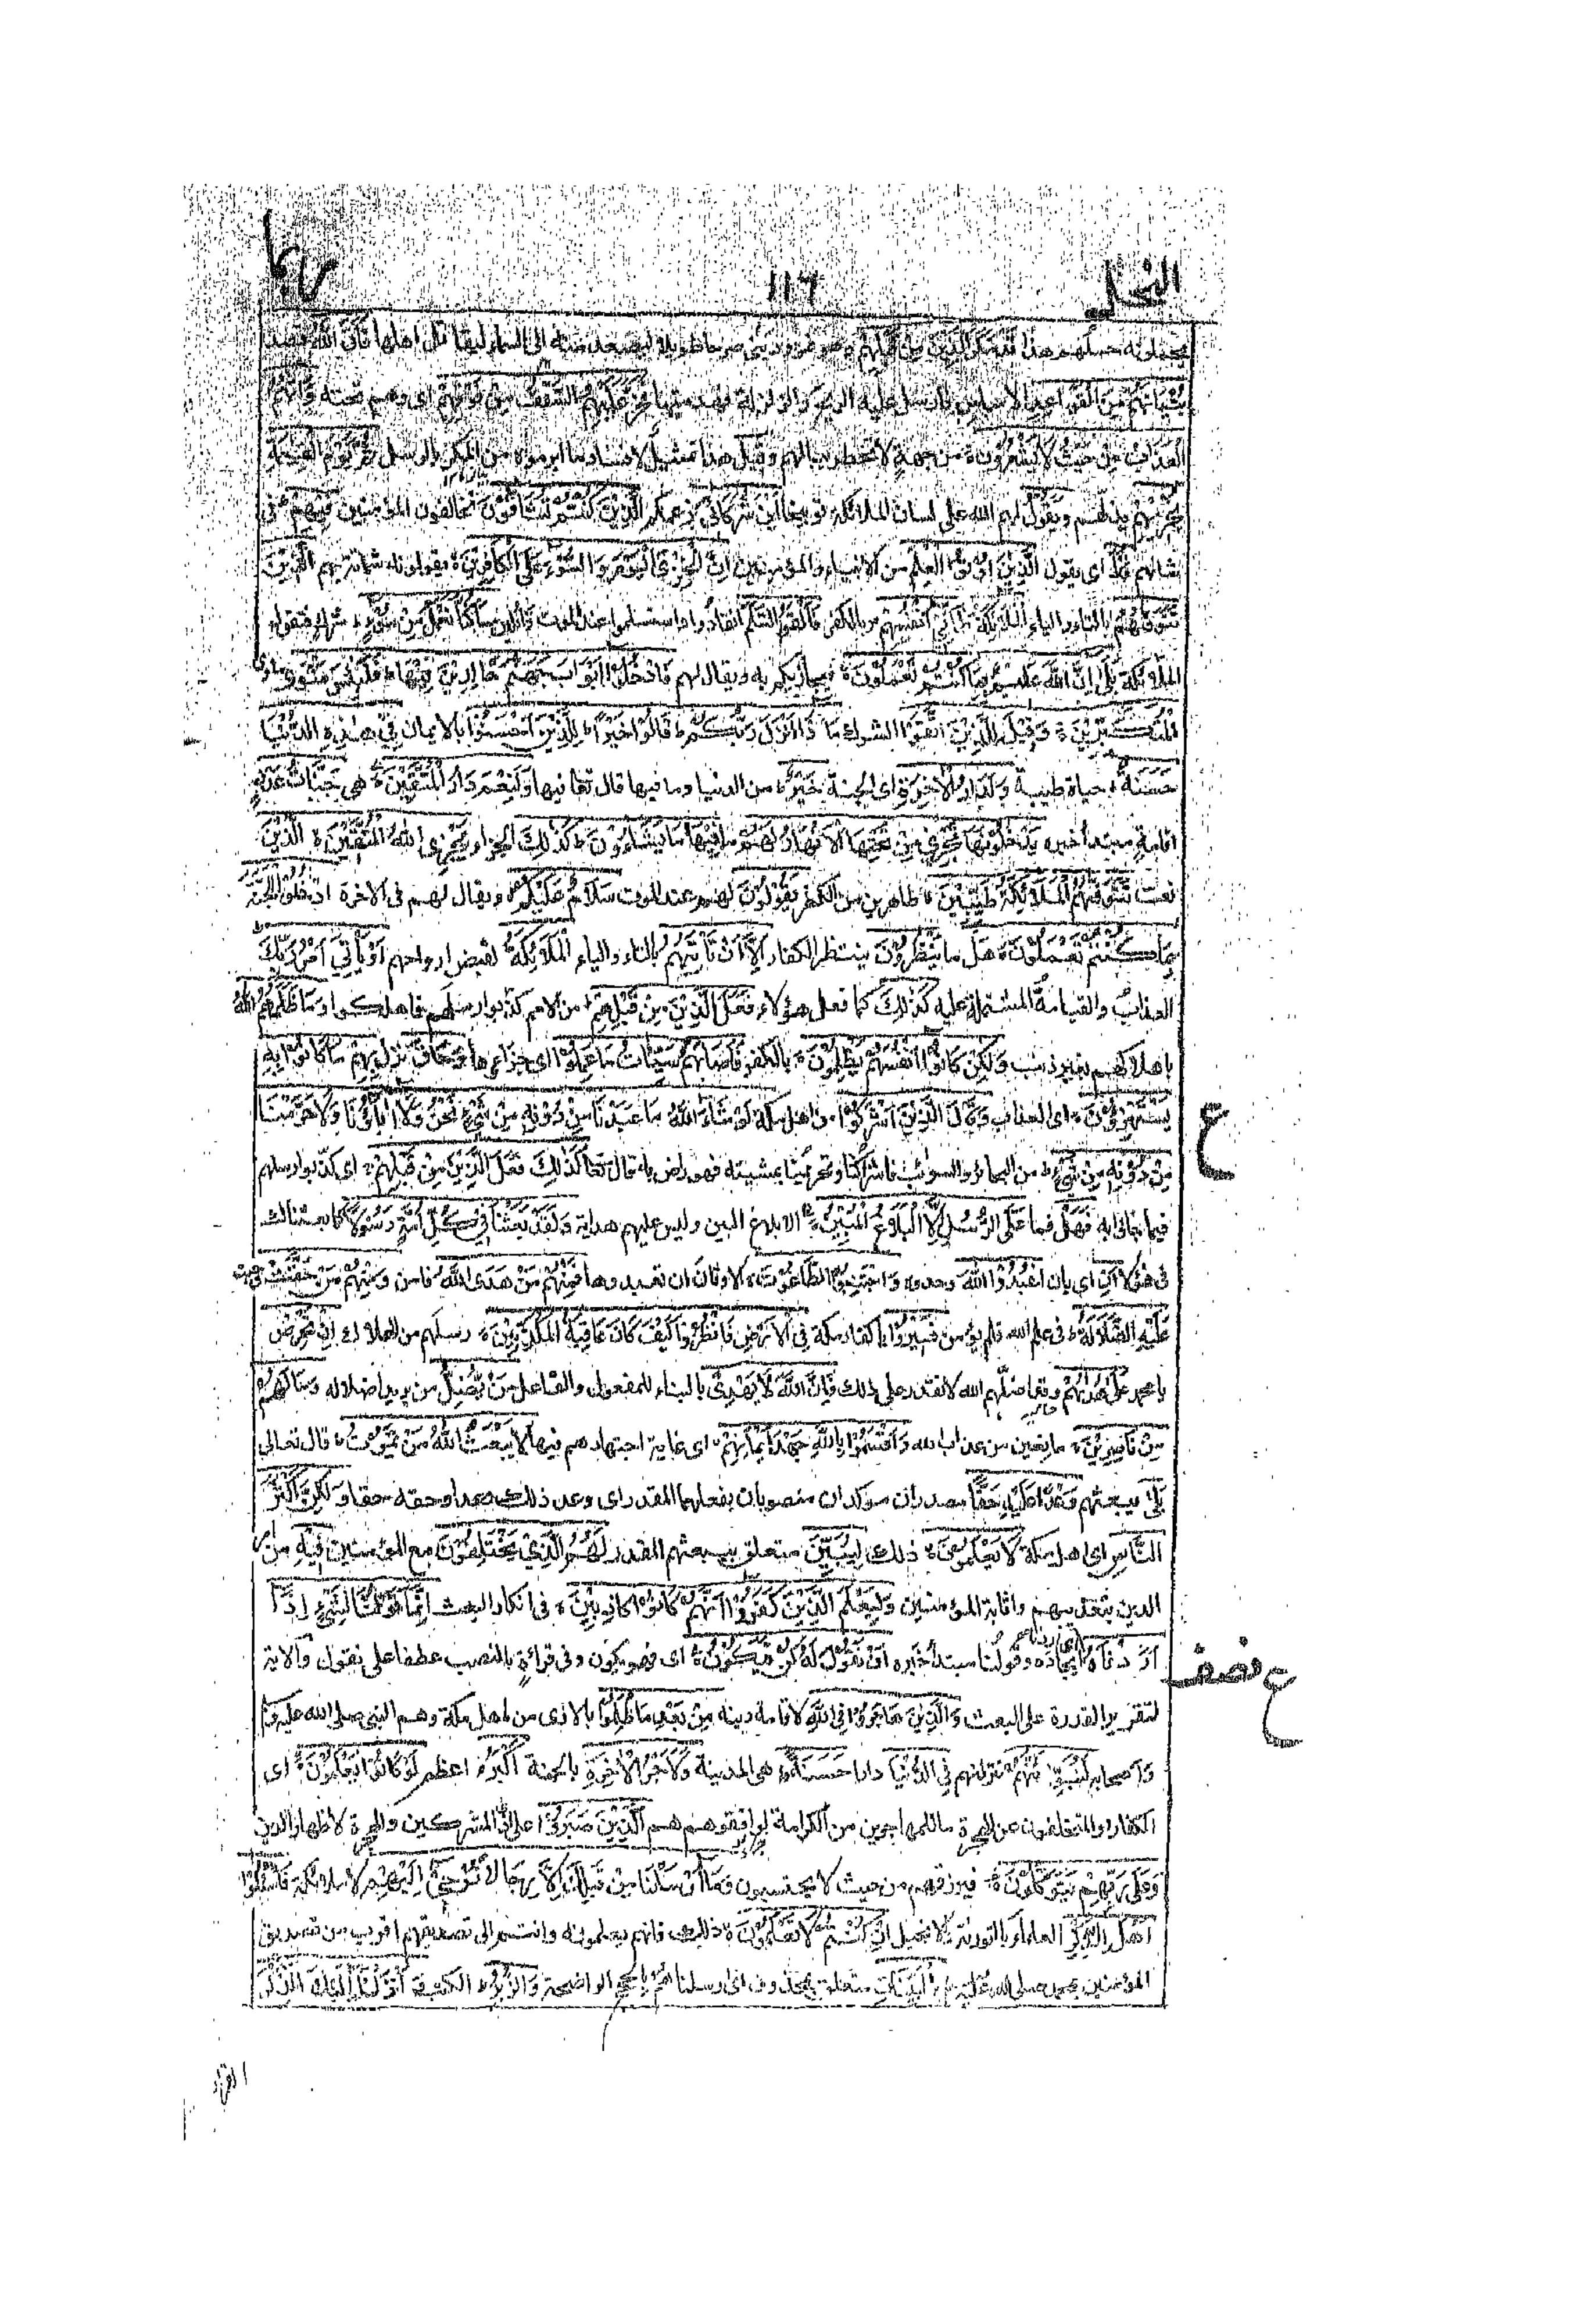 النحل ١١٦ ربما
يحملونه حملهم هذا قَدْ مَكَرَ الَّذِيْنَ مِنْ قَبْلِهِمْ وهو نمرود بنى صرحا طويلا ليصعد منه الى السماء ليقاتل اهلها فَاَتَى اللّٰهُ قصد
بُنْيَانَهُمْ مِّنَ الْقَوَاعِدِ الاساس فارسل عليه الريح والزلزلة فهدمتها فَخَرَّ عَلَيْهِمُ السَّقْفُ مِنْ فَوْقِهِمْ اى وهم تحته وَاَتٰهُمُ
الْعَذَابُ مِنْ حَيْثُ لَا يَشْعُرُوْنَ من جهة لا تخطر ببالهم وقيل هذا تمثيل لافساد ما ابرموه من المكر بالرسل ثُمَّ يَوْمَ الْقِيٰمَةِ
يُخْزِيْهِمْ يذلهم وَيَقُوْلُ لهم الله على لسان الملائكة توبيخا اَيْنَ شُرَكَائِيَ بزعمكم الَّذِيْنَ كُنْتُمْ تُشَاقُّوْنَ تخالفون المؤمنين فِيْهِمْ فى
شانهم قَالَ اى يقول الَّذِيْنَ اُوْتُوا الْعِلْمَ من الانبياء والمؤمنين اِنَّ الْخِزْيَ الْيَوْمَ وَالسُّوْءَ عَلَى الْكَافِرِيْنَ يقولونه شماتة بهم الَّذِيْنَ
تَتَوَفّٰهُمُ بالتاء والياء الْمَلٰئِكَةُ ظَالِمِيْ اَنْفُسِهِمْ بالكفر فَاَلْقَوُا السَّلَمَ انقادوا واستسلموا عند الموت قائلين مَا كُنَّا نَعْمَلُ مِنْ سُوْءٍ شرك فتقول
الملائكة بَلٰى اِنَّ اللّٰهَ عَلِيْمٌ بِمَا كُنْتُمْ تَعْمَلُوْنَ فيجازيكم به ويقال لهم فَادْخُلُوْا اَبْوَابَ جَهَنَّمَ خَالِدِيْنَ فِيْهَا فَلَبِئْسَ مَثْوَى ماوى
الْمُتَكَبِّرِيْنَ وَقِيْلَ لِلَّذِيْنَ اتَّقَوْا الشرك مَاذَا اَنْزَلَ رَبُّكُمْ قَالُوْا خَيْرًا لِلَّذِيْنَ اَحْسَنُوْا بالايمان فِيْ هٰذِهِ الدُّنْيَا
حَسَنَةٌ حياة طيبة وَلَدَارُ الْاٰخِرَةِ اى الجنة خَيْرٌ من الدنيا وما فيها قال تعا فيها وَلَنِعْمَ دَارُ الْمُتَّقِيْنَ هى جَنّٰتُ عَدْنٍ
اقامة مبتدأ خبره يَدْخُلُوْنَهَا تَجْرِيْ مِنْ تَحْتِهَا الْاَنْهَارُ لَهُمْ فِيْهَا مَا يَشَاءُوْنَ كَذٰلِكَ الجزاء يَجْزِى اللّٰهُ الْمُتَّقِيْنَ الَّذِيْنَ
نعت تَتَوَفّٰهُمُ الْمَلَائِكَةُ طَيِّبِيْنَ طاهرين من الكفر يَقُوْلُوْنَ لهم عند الموت سَلَامٌ عَلَيْكُمْ ويقال لهم فى الاخرة ادْخُلُوا الْجَنَّةَ
بِمَا كُنْتُمْ تَعْمَلُوْنَ هَلْ ما يَنْظُرُوْنَ ينتظر الكفار اِلَّا اَنْ تَأْتِيَهُمُ بالتاء والياء الْمَلَائِكَةُ لقبض ارواحهم اَوْ يَأْتِيَ اَمْرُ رَبِّكَ
العذاب والقيامة المشتملة عليه كَذٰلِكَ كما فعل هؤلاء فَعَلَ الَّذِيْنَ مِنْ قَبْلِهِمْ من الامم كذبوا رسلهم فاهلكوا وَمَا ظَلَمَهُمُ اللّٰهُ
باهلاكهم بغير ذنب وَلٰكِنْ كَانُوْا اَنْفُسَهُمْ يَظْلِمُوْنَ بالكفر فَاَصَابَهُمْ سَيِّئَاتُ مَا عَمِلُوْا اى جزاءها وَحَاقَ نزل بِهِمْ مَا كَانُوْا بِهِ
يَسْتَهْزِءُوْنَ اى العذاب وَقَالَ الَّذِيْنَ اَشْرَكُوْا من اهل مكة لَوْ شَاءَ اللّٰهُ مَا عَبَدْنَا مِنْ دُوْنِهِ مِنْ شَيْءٍ نَحْنُ وَلَا اٰبَاؤُنَا وَلَا حَرَّمْنَا
ع
مِنْ دُوْنِهِ مِنْ شَيْءٍ من البحائر والسوائب فاشراكنا وتحريمنا بمشيته فهو راض به قال تعا كَذٰلِكَ فَعَلَ الَّذِيْنَ مِنْ قَبْلِهِمْ اى كذبوا رسلهم
فيما جاؤا به فَهَلْ فما عَلَى الرُّسُلِ اِلَّا الْبَلَاغُ الْمُبِيْنُ الابلاغ البين وليس عليهم هداية وَلَقَدْ بَعَثْنَا فِيْ كُلِّ اُمَّةٍ رَسُوْلًا كما بعثناك
فى هؤلاء اَنِ اى بان اعْبُدُوا اللّٰهَ وحدوه وَاجْتَنِبُوا الطَّاغُوْتَ الاوثان ان تعبدوها فَمِنْهُمْ مَنْ هَدَى اللّٰهُ فامن وَمِنْهُمْ مَنْ حَقَّتْ وجبت
عَلَيْهِ الضَّلَالَةُ فى علم الله فلم يؤمن فَسِيْرُوْا يا كفار مكة فِى الْاَرْضِ فَانْظُرُوْا كَيْفَ كَانَ عَاقِبَةُ الْمُكَذِّبِيْنَ رسلهم من الهلاك اِنْ تَحْرِصْ
يا محمد عَلٰى هُدٰىهُمْ وقد اضلهم الله لا تقدر على ذلك فَاِنَّ اللّٰهَ لَا يَهْدِيْ بالبناء للمفعول والفاعل مَنْ يُّضِلُّ من يريد اضلاله وَمَا لَهُمْ
مِنْ نَاصِرِيْنَ مانعين من عذاب الله وَاَقْسَمُوْا بِاللّٰهِ جَهْدَ اَيْمَانِهِمْ اى غاية اجتهادهم فيها لَا يَبْعَثُ اللّٰهُ مَنْ يَّمُوْتُ قال تعالى
بَلٰى يبعثهم وَعْدًا عَلَيْهِ حَقًّا مصدران موكدان منصوبان بفعلهما المقدر اى وعد ذلك وعدا وحقه حقا وَلٰكِنَّ اَكْثَرَ
النَّاسِ اى اهل مكة لَا يَعْلَمُوْنَ ذلك لِيُبَيِّنَ متعلق بيبعثهم المقدر لَهُمُ الَّذِيْ يَخْتَلِفُوْنَ مع المؤمنين فِيْهِ من امر
الدين بتعذيبهم واثابة المؤمنين وَلِيَعْلَمَ الَّذِيْنَ كَفَرُوْا اَنَّهُمْ كَانُوْا كَاذِبِيْنَ فى انكار البعث اِنَّمَا قَوْلُنَا لِشَيْءٍ اِذَا
اَرَدْنَاهُ اى اردنا ايجاده وقولنا مبتدأ خبره اَنْ نَقُوْلَ لَهُ كُنْ فَيَكُوْنُ اى فهو يكون وفى قراءة بالنصب عطفا على نقول والاية
ع نصف
لتقرير القدرة على البعث وَالَّذِيْنَ هَاجَرُوْا فِى اللّٰهِ لاقامة دينه مِنْ بَعْدِ مَا ظُلِمُوْا بالاذى من اهل مكة وهم النبى صلى الله عليه وسلم
واصحابه لَنُبَوِّئَنَّهُمْ ننزلنهم فِى الدُّنْيَا دارا حَسَنَةً هى المدينة وَلَاَجْرُ الْاٰخِرَةِ اى الجنة اَكْبَرُ اعظم لَوْ كَانُوْا يَعْلَمُوْنَ اى
الكفار او المتخلفون عن الهجرة ما للمهاجرين من الكرامة لوافقوهم هم الَّذِيْنَ صَبَرُوْا على اذى المشركين والهجرة لاظهار الدين
وَعَلٰى رَبِّهِمْ يَتَوَكَّلُوْنَ فيرزقهم من حيث لا يحتسبون وَمَا اَرْسَلْنَا مِنْ قَبْلِكَ اِلَّا رِجَالًا نُوْحِيْ اِلَيْهِمْ لا ملائكة فَاسْئَلُوْا
اَهْلَ الذِّكْرِ العلماء بالتورىة والانجيل اِنْ كُنْتُمْ لَا تَعْلَمُوْنَ ذلك فانهم يعلمونه وانتم الى تصديقهم اقرب من تصديق
المؤمنين بمحمد صلى الله عليه وسلم بِالْبَيِّنَاتِ متعلق بمحذوف اى ارسلناهم بالحجج الواضحة وَالزُّبُرِ الكتب وَاَنْزَلْنَا اِلَيْكَ الذِّكْرَ
القرآن